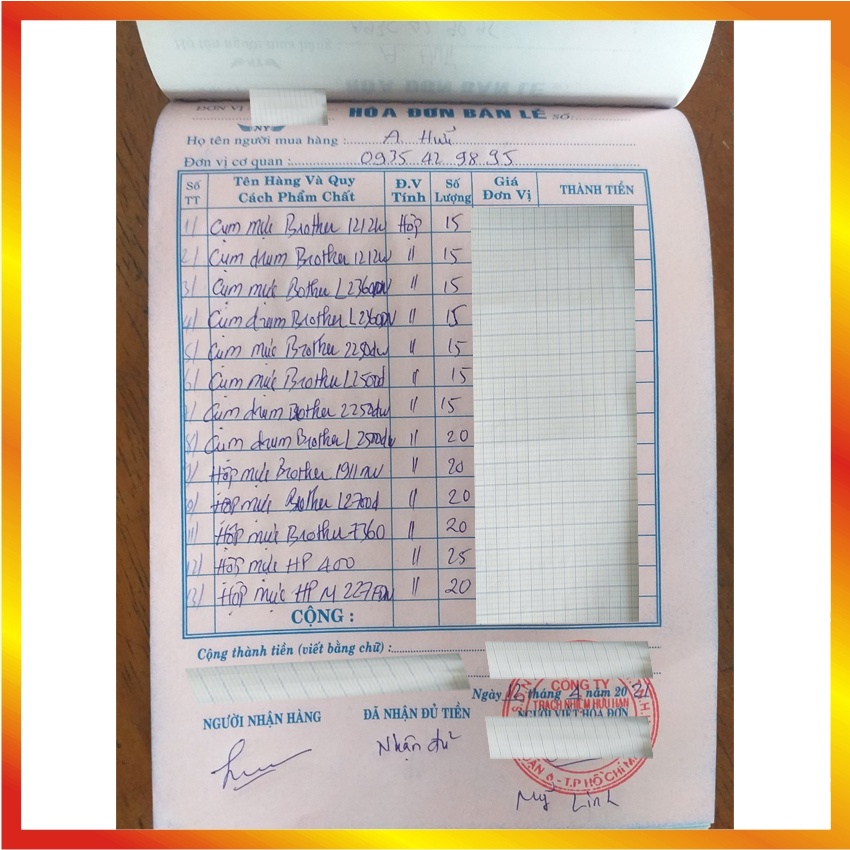 ĐƠN VỊ
HÓA ĐƠN BÁN LẺ
SỐ
Họ tên người mua hàng : A. Huy
Đơn vị cơ quan : 0935 42 98 95
Số TT Tên Hàng Và Quy Cách Phẩm Chất Đ.V Tính Số Lượng Giá Đơn Vị THÀNH TIỀN
1/ Cụm mực Brother 1212w Hộp 15
2/ Cụm drum Brother 1212w " 15
3/ Cụm mực Bother L2360DN " 15
4/ Cụm drum Brother L2360DN " 15
5/ Cụm mực Brother 2250dw " 15
6/ Cụm mực Brother L2500d " 15
7/ Cụm drum Brother 2250dw " 15
8/ Cụm drum Brother L2500dw " 20
9/ Hộp mực Brother 1911nw " 20
Hộp mực Brother L2700d " 20
11/ Hộp mực Brother 7360 " 20
12/ Hộp mực HP 400 " 25
13/ Hộp mực HP M 227FDN " 20
CỘNG :
Cộng thành tiền (viết bằng chữ) :
Ngày 12 tháng 4 năm 2021
NGƯỜI NHẬN HÀNG ĐÃ NHẬN ĐỦ TIỀN NGƯỜI VIẾT HÓA ĐƠN
Nhận đủ
CÔNG TY
TRÁCH NHIỆM HỮU HẠN
QUẬN 6 - T.P HỒ CHÍ
Mỹ Linh